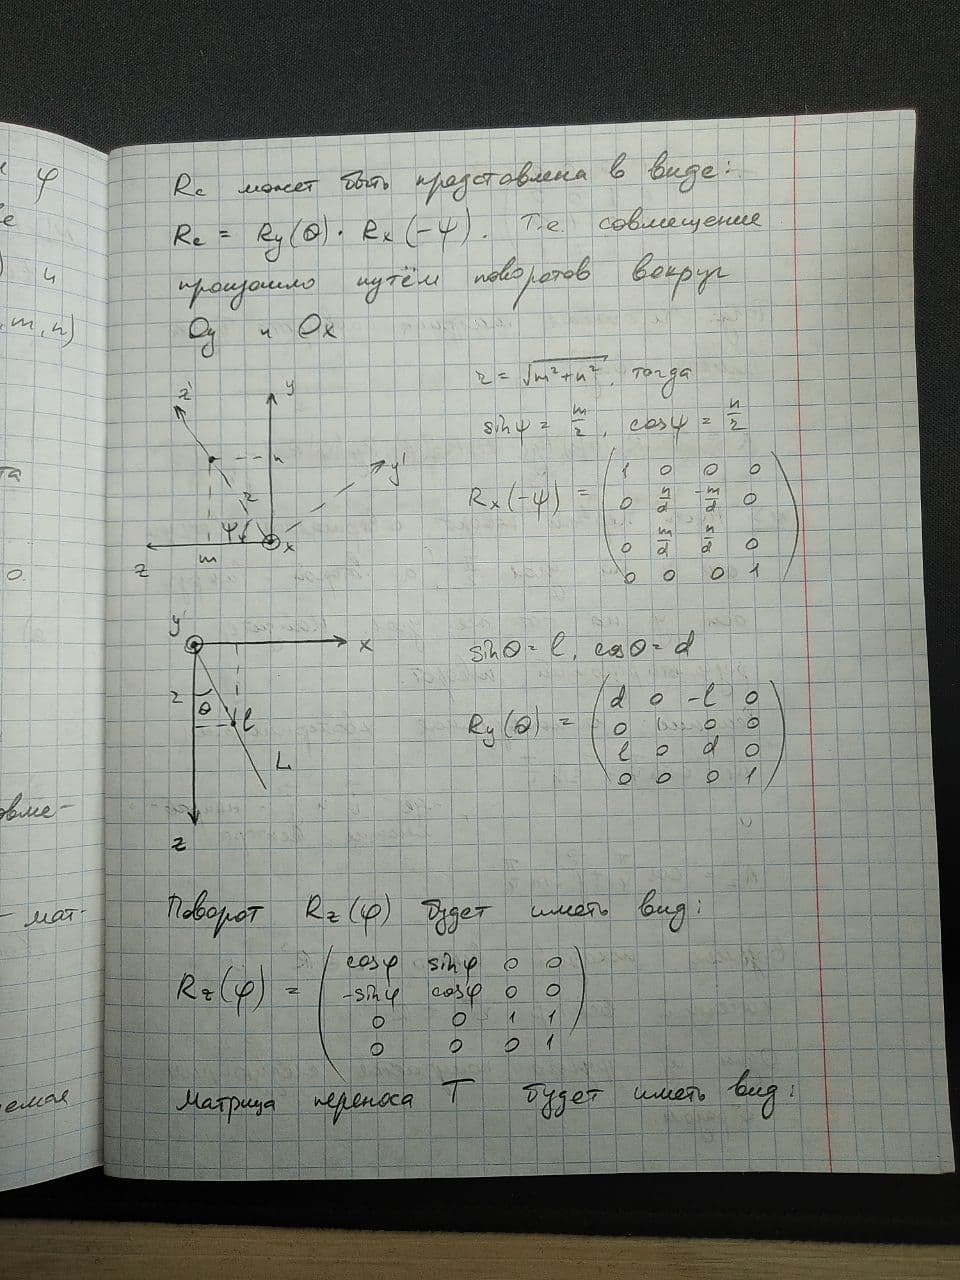 φ
Rc может быть представлена в виде:
Rc = Ry(θ) · Rx(-ψ). Т.е. совмещение
произошло путём поворотов вокруг
Oy и Ox
, m, n)
r = √m²+n², тогда
sinψ = m/r, cosψ = n/r
Rx(-ψ) = ( 1 0 0 0
0 n/d -m/d 0
0 m/d n/d 0
0 0 0 1 )
z' y y' n r ψ m x z
0.
y' x
sinθ = l, cosθ = d
r θ l L z
Ry(θ) = ( d 0 -l 0
0 1 0 0
l 0 d 0
0 0 0 1 )
овме-
- мат-
Поворот Rz(φ) будет иметь вид:
Rz(φ) = ( cosφ sinφ 0 0
-sinφ cosφ 0 0
0 0 1 1
0 0 0 1 )
емая
Матрица переноса T будет иметь вид: